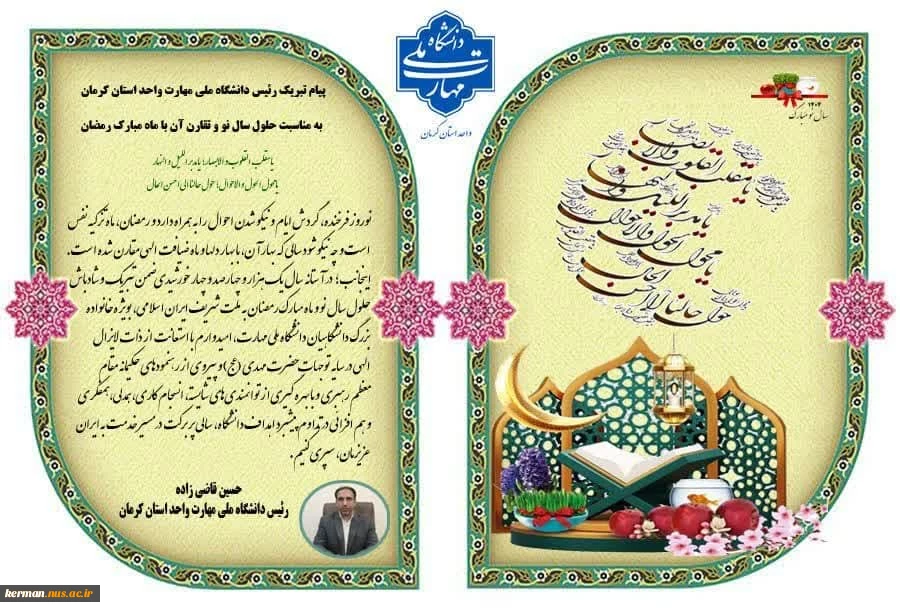 دانشگاه ملی مهارت
واحد استان کرمان
پیام تبریک رئیس دانشگاه ملی مهارت واحد استان کرمان
به مناسبت حلول سال نو و تقارن آن با ماه مبارک رمضان
یا مقلب القلوب و الابصار؛ یا مدبر اللیل و النهار
یا محول الحول و الاحوال؛ حول حالنا الی احسن الحال
نوروز فرخنده، گردش ایام و نیکو شدن احوال را به همراه دارد و رمضان، ماه تزکیه نفس
است و چه نیکو شود سالی که بهار آن، با بهار دلها و ماه ضیافت الهی مقارن شده است.
اینجانب؛ در آستانه سال یک هزار و چهارصد و چهار خورشیدی ضمن تبریک و شادباش
حلول سال نو و ماه مبارک رمضان به ملت شریف ایران اسلامی، بویژه خانواده
بزرگ دانشگاهیان دانشگاه ملی مهارت، امیدوارم با استعانت از ذات لایزال
الهی در سایه توجهات حضرت مهدی (عج) و پیروی از رهنمودهای حکیمانه مقام
معظم رهبری و با بهره گیری از توانمندی های شایسته، انسجام کاری، همدلی، همفکری
و هم افزائی در تداوم پیشبرد اهداف دانشگاه، سالی پر برکت در مسیر خدمت به ایران
عزیزمان، سپری کنیم.
حسین قاضی زاده
رئیس دانشگاه ملی مهارت واحد استان کرمان
۱۴۰۴
سال نو مبارک
یا مقلب القلوب و الابصار
یا مدبر اللیل و النهار
یا محول الحول و الاحوال
حول حالنا الی احسن الحال
kerman.nus.ac.ir